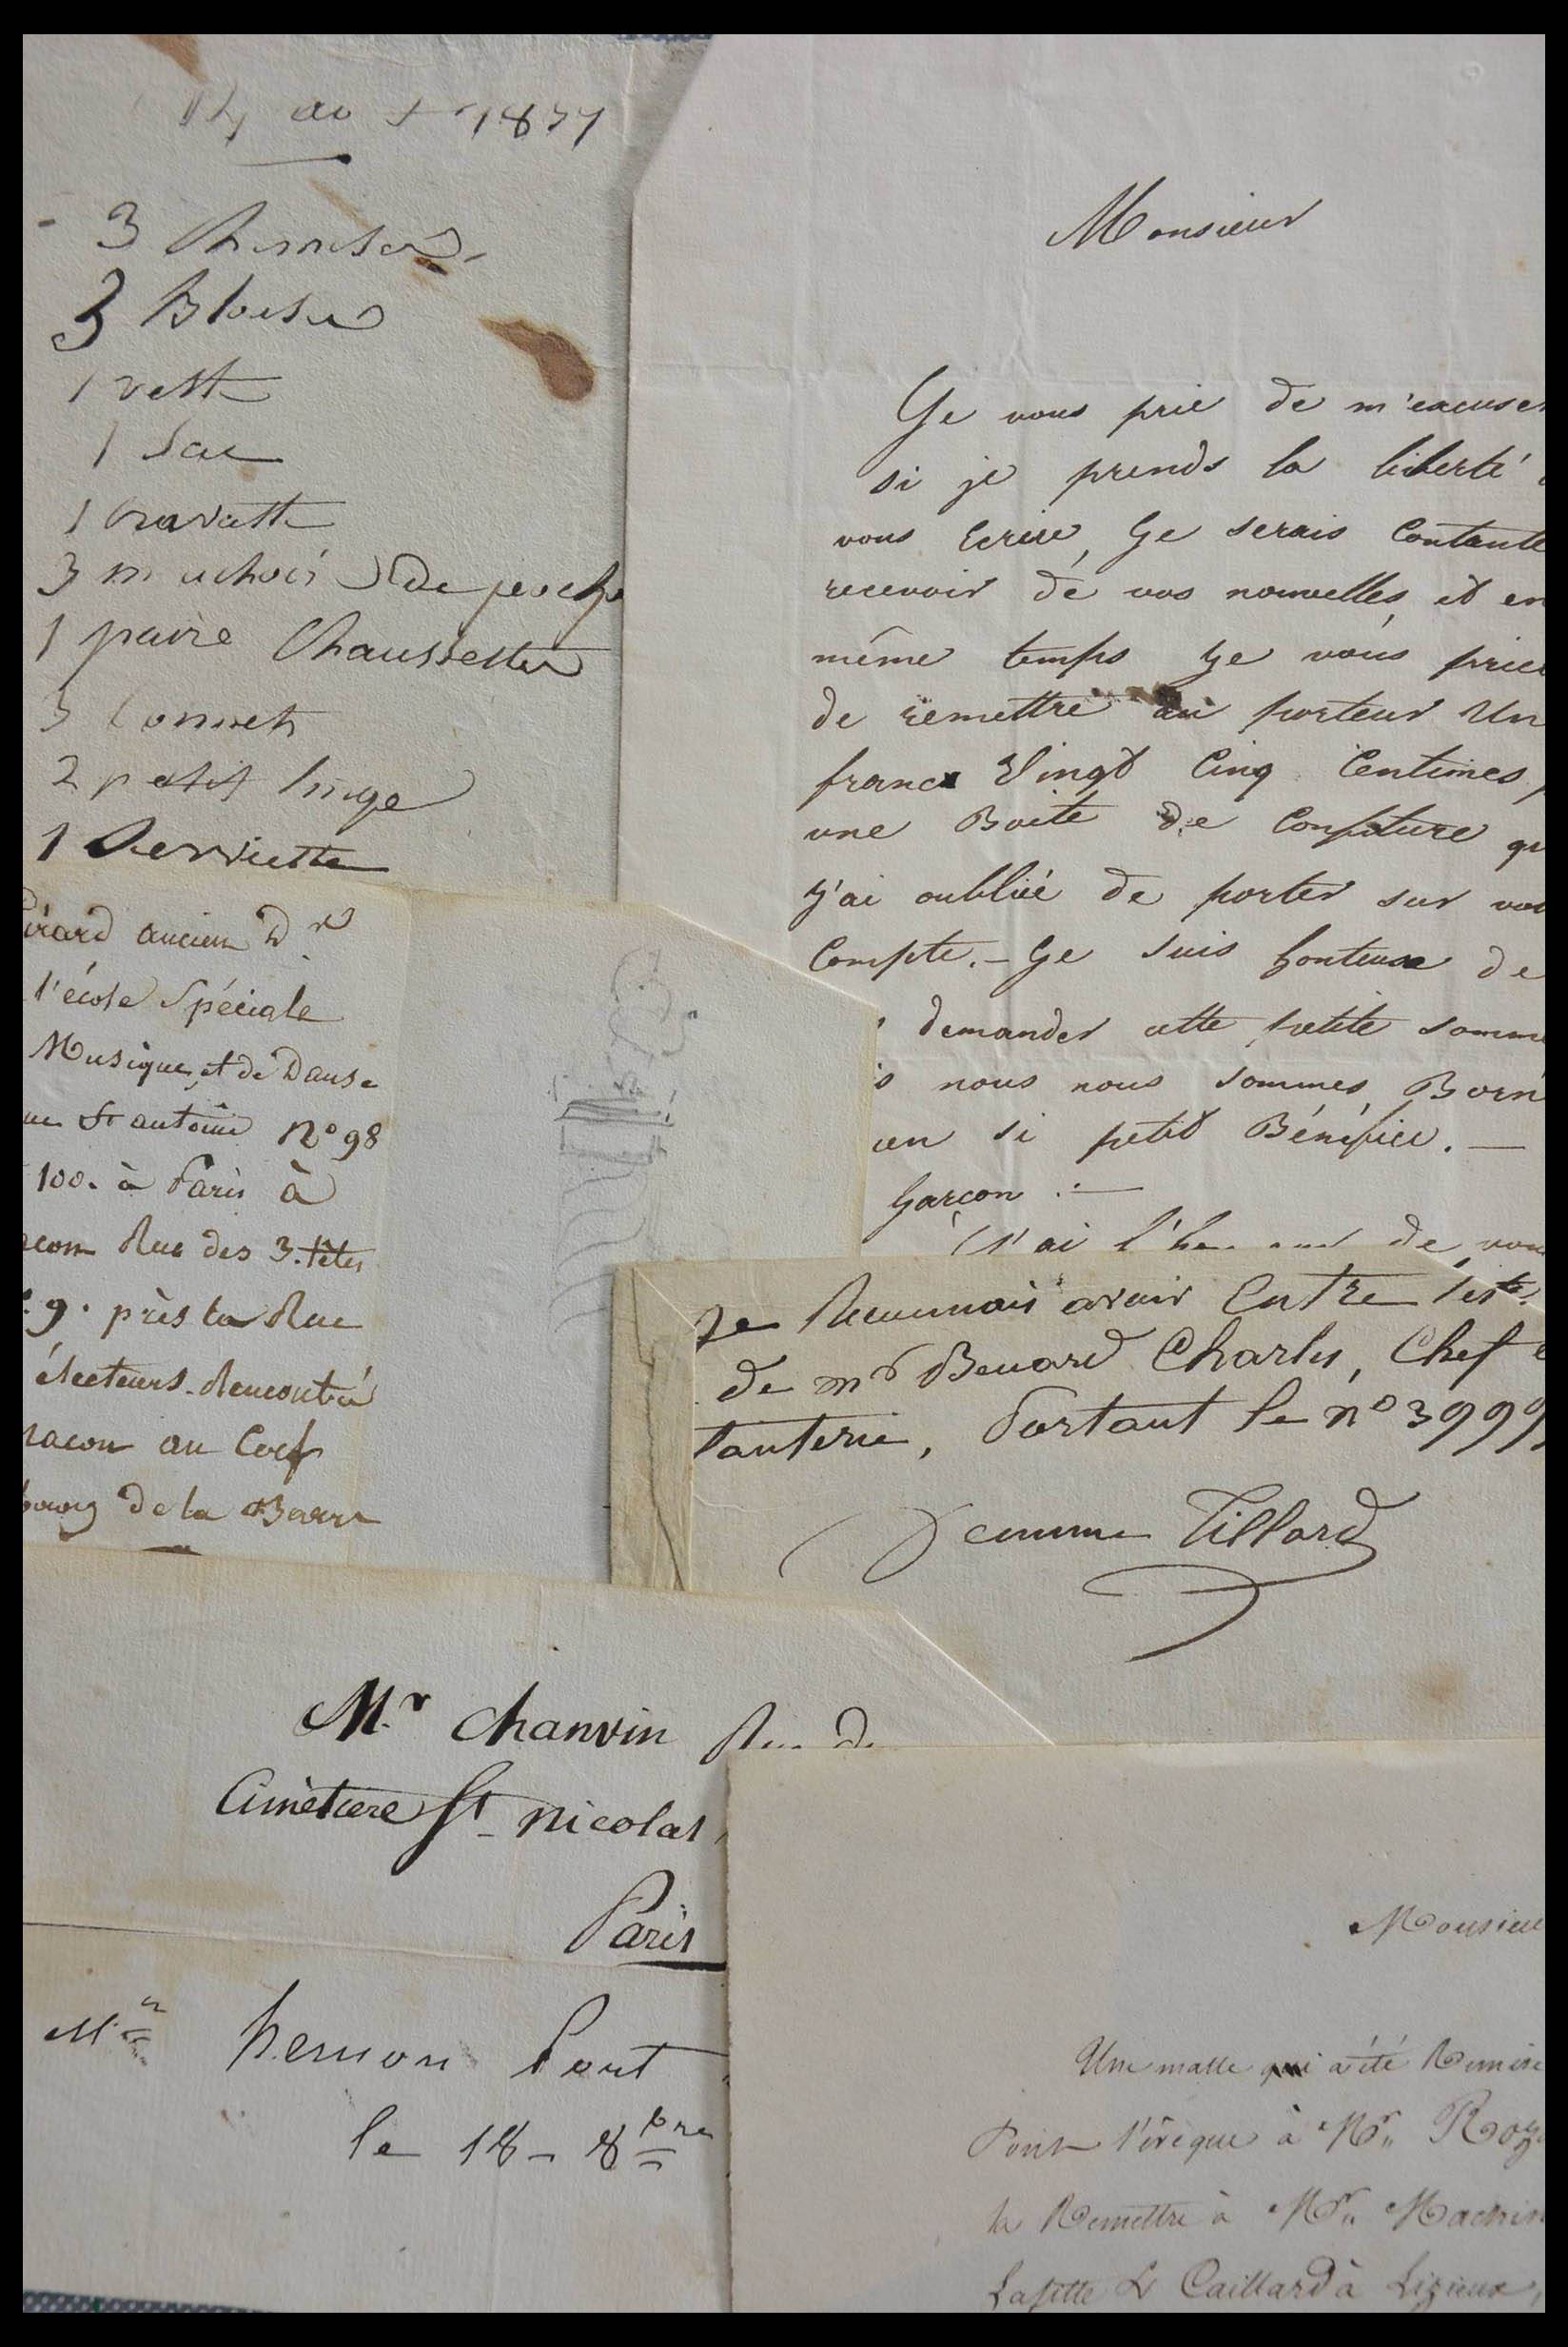 3 Chemises
3 Blouses
1 veste
1 Sac
1 Cravatte
3 mouchoir de poche
1 paire Chaussettes
3 bonnets
2 petit linge
1 Serviette
Monsieur
Ge vous prie de m'excuser
si je prends la liberté
vous Ecrire, Ge serais Contante
recevoir de vos nouvelles et en
même temps Ge vous prie
de remettre au porteur Un
franc Vingt Cinq Centimes
une Boite de Confiture qu
J'ai oubliée de porter sur vot
Compte. – Ge suis honteuse de
demander cette petite somme
s nous nous sommes Born
un si petit Bénéfice. —
Garçon . —
J'ai l'honneur de vou
irard ancien Dr
l'école Spéciale
Musique, et de Danse
ue St antoine No 98
100. à Paris à
acon Rue des 3. têtes
9. près la Rue
électeurs. Rencontré
Macon au Coef
bourg de la Barre
Je Reconnais avoir Entre les
de mr Benard Charles, Chef
tanterie, Portant le no 3999
femme Tillard
Mr Chanvin Rue du
Cimetiere St Nicolas,
Paris
hernon Pont
le 18 – 8bre
Monsieu
Une malle qui a été Remise
Pont l'évêque à Mr
la Remettre à Mr
Lafitte & Caillard à Lizieux,